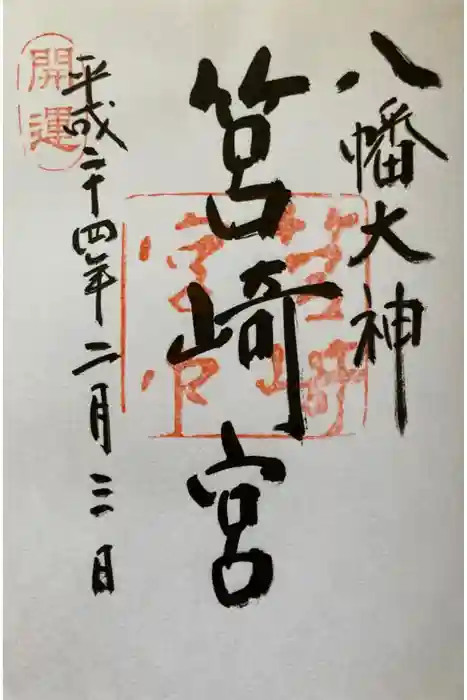 八幡大神
筥崎宮
平成二十四年二月三日
開運
筥崎
宮印